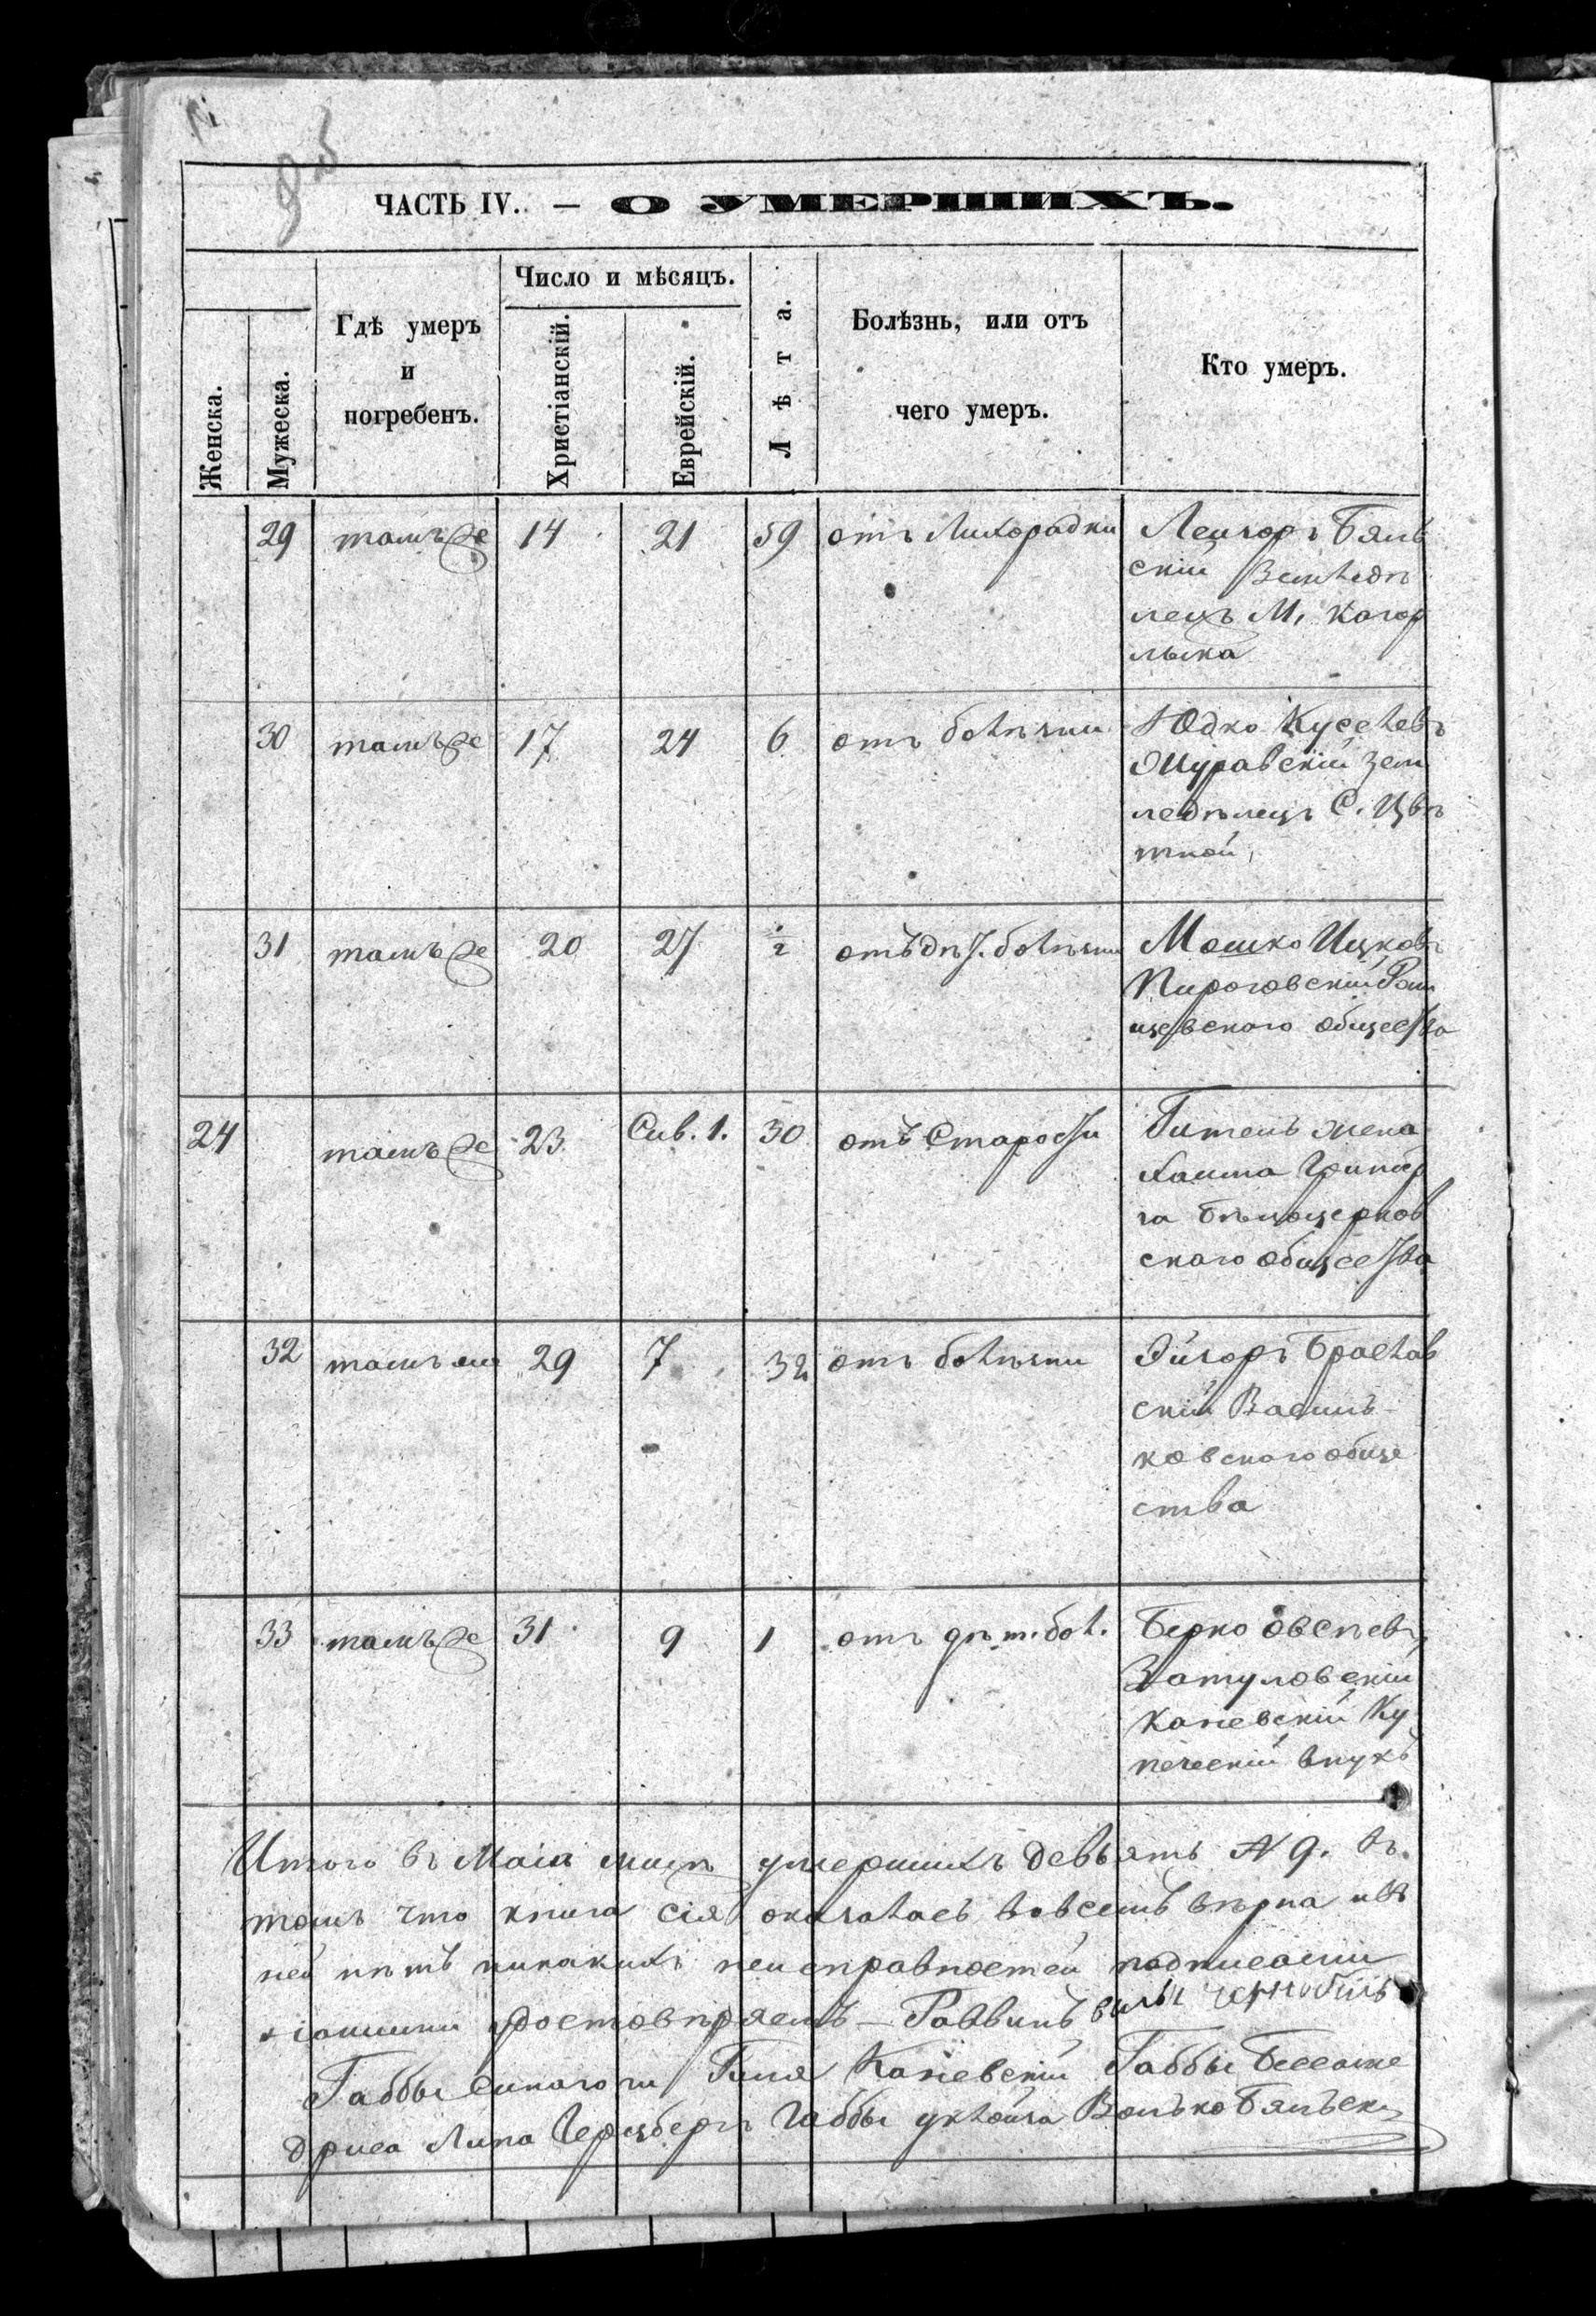 ЧАСТЬ IV. — О УМЕРШИХЪ.
Женска.
Мужеска.
Гдѣ умеръ
и
погребенъ.
Число и мѣсяцъ.
Христіанскій.
Еврейскій.
Лѣта.
Болѣзнь, или отъ
чего умеръ.
Кто умеръ.
29 тамъ же 14 21 59 отъ Лихорадки Лейзоръ Бяль
скій Землѣдѣ
лецъ М. Кагор
лыка
30 тамъ же 17 24 6 отъ болѣзни Юдко
Муравскій Зем
ледѣлецъ С. Цвѣ
тной,
31 тамъ же 20 27 ½ отъ дѣт. болѣзни Мошко Ицковъ
Пироговскій Рж
ищевского общества
24 тамъ же 23 Сив. 1. 30 отъ Старости жена
Хаима
га Бѣлоцерков
ского общества
32 тамъ же 29 7 32 отъ болѣзни Эйзоръ Браслав
скій Василь-
ковского обще
ства
33 тамъ же 31 9 1 отъ дѣт. бол. Берко Овсѣевъ
Затуловскій
Каневскій Ку
печескій внукъ
Итого въ Маіа умершихъ девьять № 9. въ
томъ что книга сія оказалась вовсемъ вѣрна и въ
ней нѣтъ никакихъ неисправностей подписомъ
Раввинъ
Габбы Синагоги Каневскій Габбы
Липа Герцбергъ Габбы Волько Бяльск